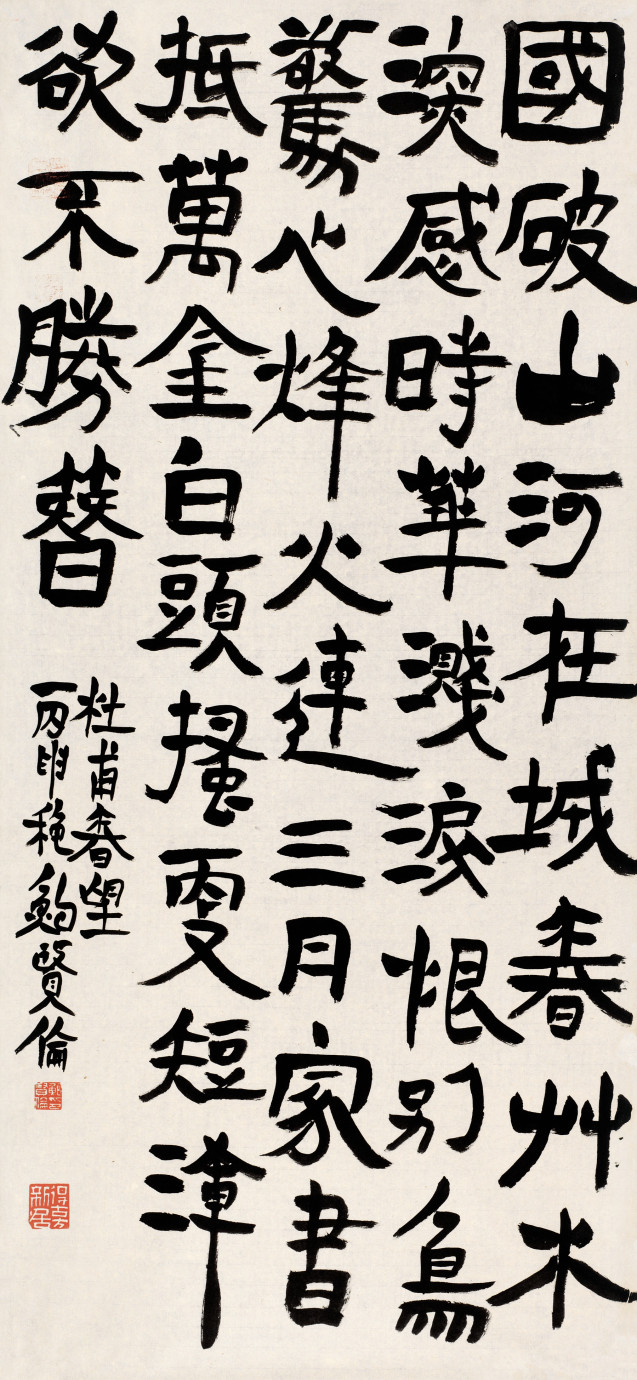 國破山河在城春艸木
深感時華濺淚恨別鳥
驚心烽火連三月家書
抵萬金白頭搔更短渾
欲不勝簪
杜甫春望
丙申穐鮑賢倫